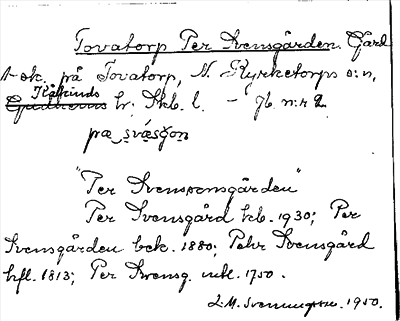 Tovatorp Per Svensgården. Gård
1 sk. på Tovatorp, N. Kyrketorps s:n,
Kåkinds
Gudhems hr. Skb. l. – Jb. n:r 2
pæ svæsgọn
"Per Svensonsgården"
Per Svensgård kb. 1930; Per
Svensgården bek. 1880; Pehr Svensgård
hfl. 1813; Per Svensg. mtl. 1750.
L.M. Svenungsson. 1950.